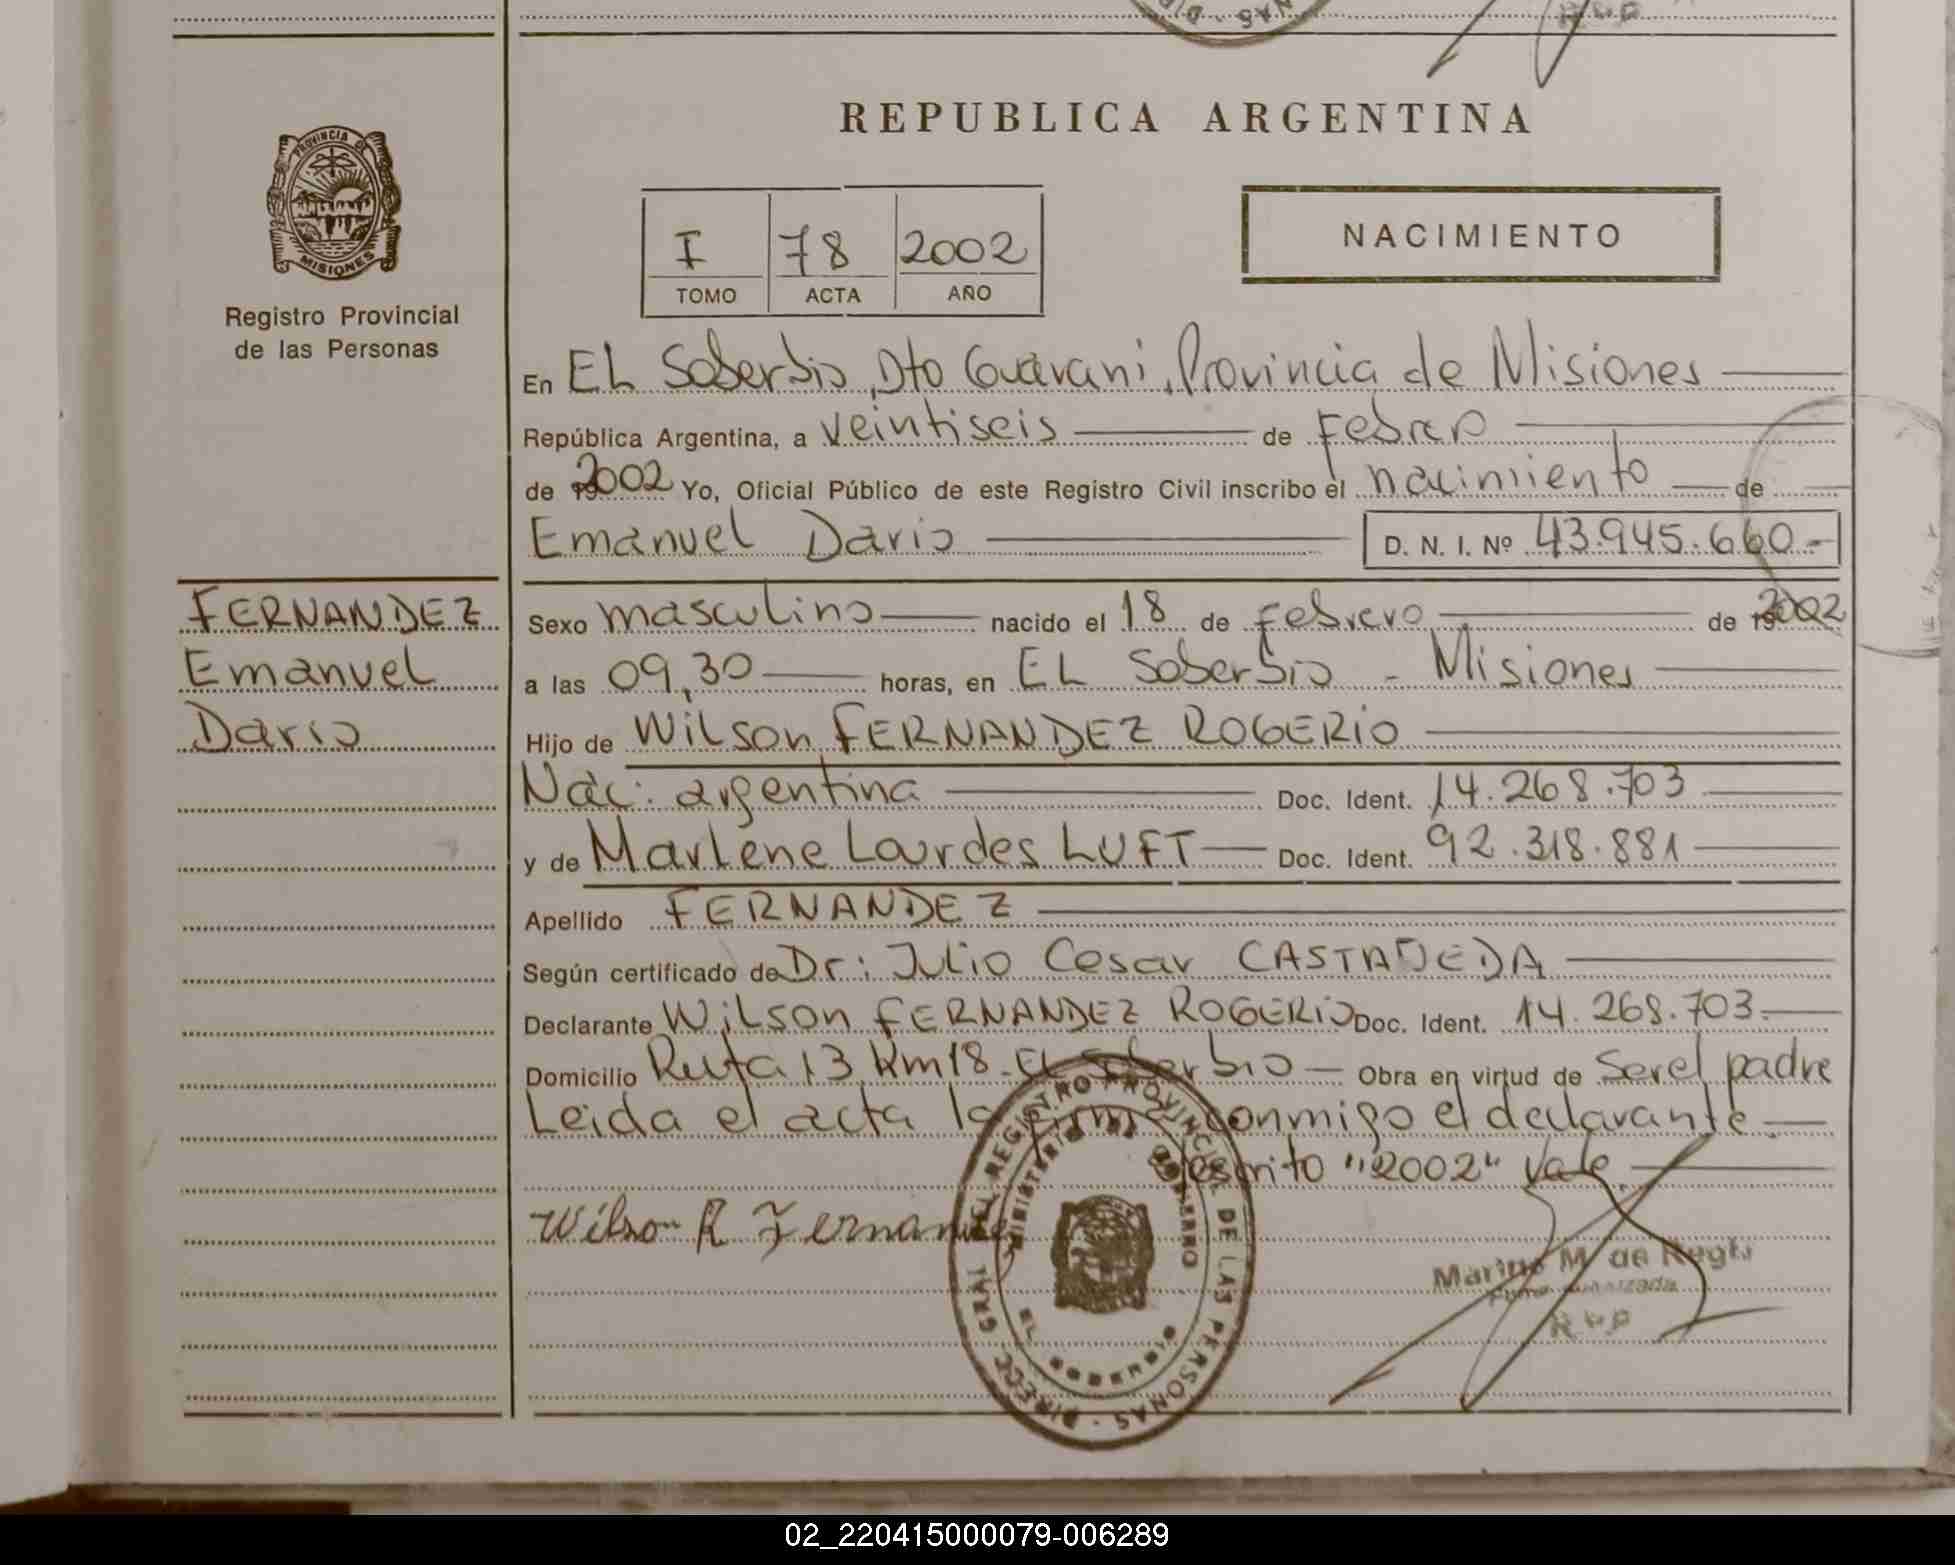 REPUBLICA ARGENTINA
PROVINCIA DE
MISIONES
Registro Provincial
de las Personas
I 78 2002
TOMO ACTA AÑO
NACIMIENTO
En EL Soberbio, Dto Guarani, Provincia de Misiones
República Argentina, a veintiseis de Febrero
de 2002 Yo, Oficial Público de este Registro Civil inscribo el nacimiento de
Emanuel Dario D. N. I. Nº 43.945.660.-
FERNANDEZ
Emanuel
Dario
Sexo masculino nacido el 18 de Febrero de 2002
a las 09,30 horas, en EL Soberbio - Misiones
Hijo de Wilson FERNANDEZ ROGERIO
Nac: argentina Doc. Ident. 14.268.703
y de Marlene Lourdes LUFT Doc. Ident. 92.318.881
Apellido FERNANDEZ
Según certificado de Dr: Julio Cesar CASTAÑEDA
Declarante Wilson FERNANDEZ ROGERIO Doc. Ident. 14.268.703.
Domicilio Ruta 13 Km 18 - El Soberbio Obra en virtud de Ser el padre
Leida el acta la firma conmigo el declarante.
"2002" Vale.
Wilson R Fernandez
DIRECC GRAL DEL REGISTRO PROVINCIAL DE LAS PERSONAS
MINISTERIO DE GOBIERNO
EL SOBERBIO
R P P
02_220415000079-006289